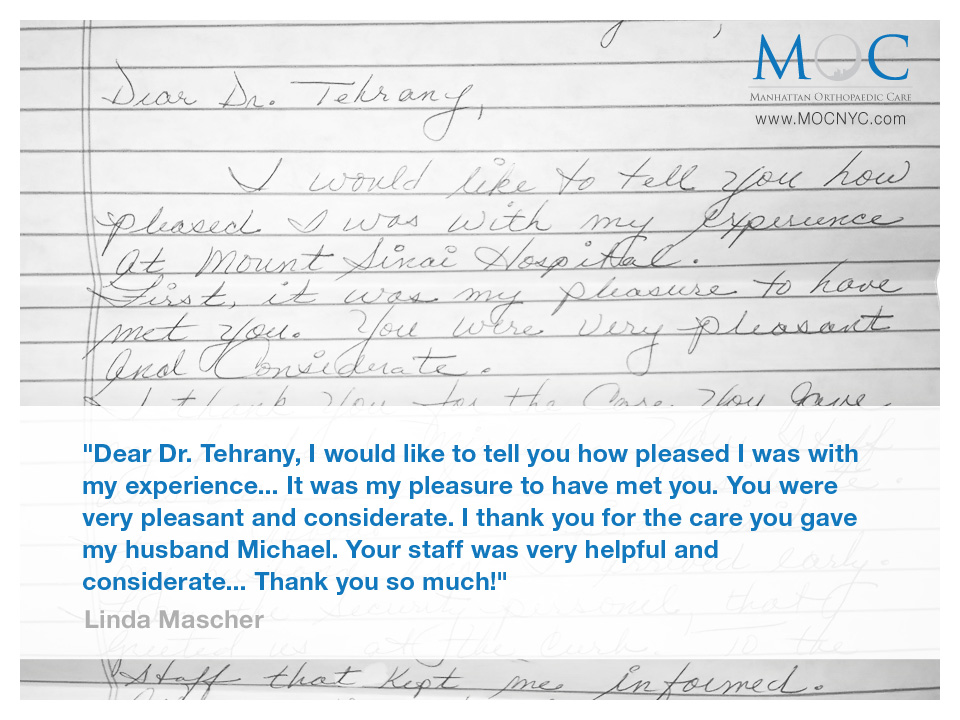 MOC
MANHATTAN ORTHOPAEDIC CARE
www.MOCNYC.com
Dear Dr. Tehrany,
I would like to tell you how
pleased I was with my experience
at Mount Sinai Hospital.
First, it was my pleasure to have
met you. You were very pleasant
and Considerate.
I thank you for the Care you gave
"Dear Dr. Tehrany, I would like to tell you how pleased I was with
my experience... It was my pleasure to have met you. You were
very pleasant and considerate. I thank you for the care you gave
my husband Michael. Your staff was very helpful and
considerate... Thank you so much!"
Linda Mascher
early.
personel that
greeted us at the Curb. To the
staff that kept me informed.